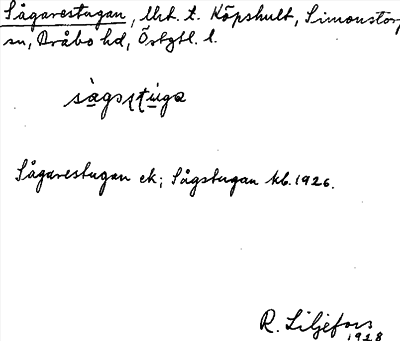 Sågarestugan, lht. t. Köpshult, Simonstorp
sn, Bråbo hd, Östgtl. l.
Sågarestugan ek; Sågstugan kb. 1926.
R. Liljefors
1928